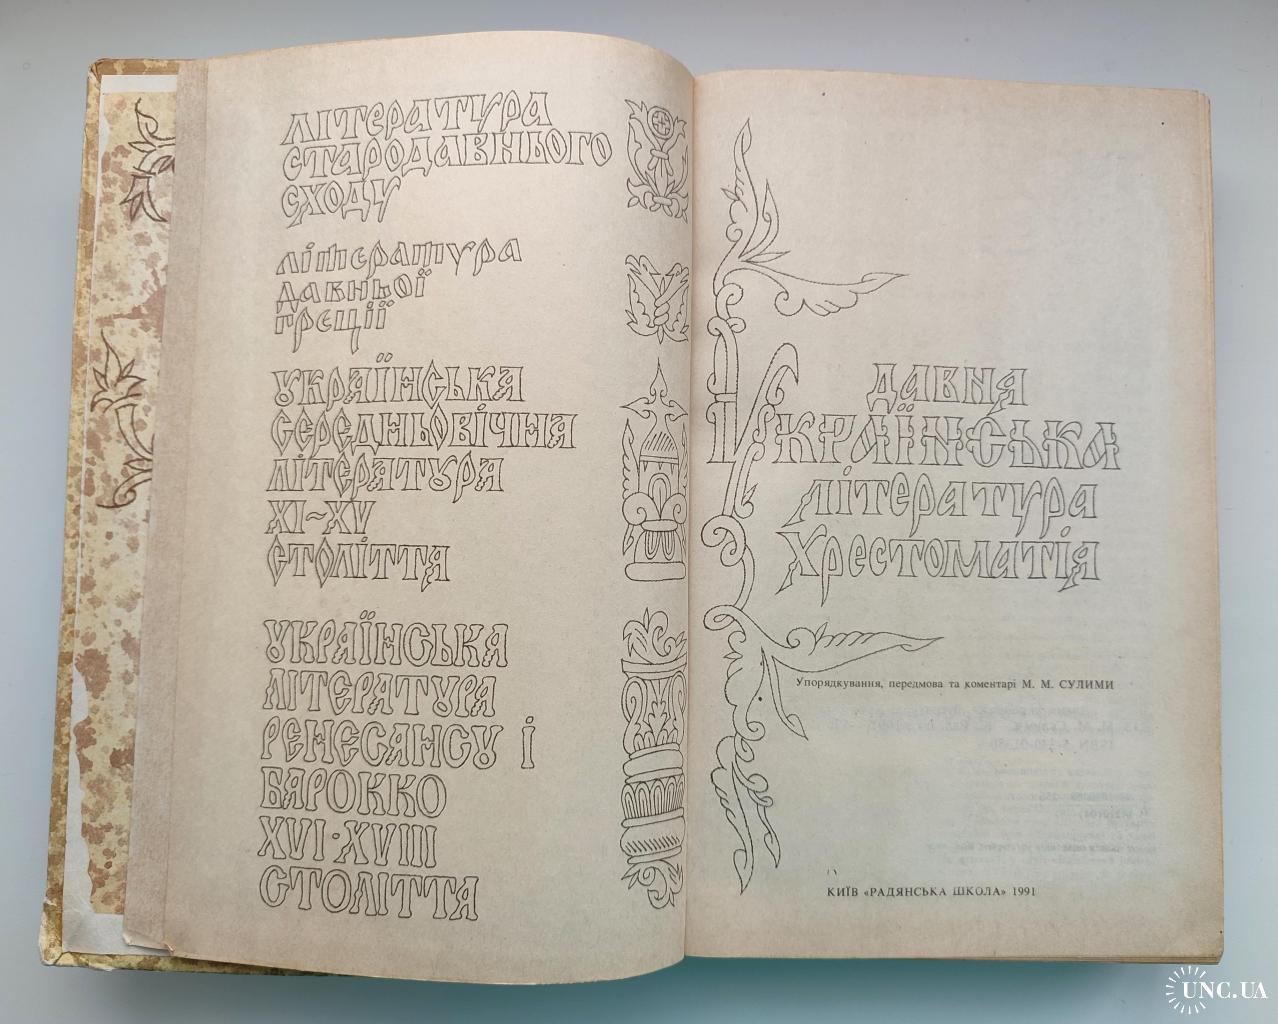 ЛІТЕРАТУРА
СТАРОДАВНЬОГО
СХОДУ
ЛІТЕРАТУРА
ДАВНЬОЇ
ГРЕЦІЇ
УКРАЇНСЬКА
СЕРЕДНЬОВІЧНА
ЛІТЕРАТУРА
XI–XV
СТОЛІТТЯ
УКРАЇНСЬКА
ЛІТЕРАТУРА
РЕНЕСАНСУ І
БАРОККО
XVI·XVIII
СТОЛІТТЯ
ДАВНЯ
УКРАЇНСЬКА
ЛІТЕРАТУРА
ХРЕСТОМАТІЯ
Упорядкування, передмова та коментарі М. М. СУЛИМИ
КИЇВ «РАДЯНСЬКА ШКОЛА» 1991
UNC.UA